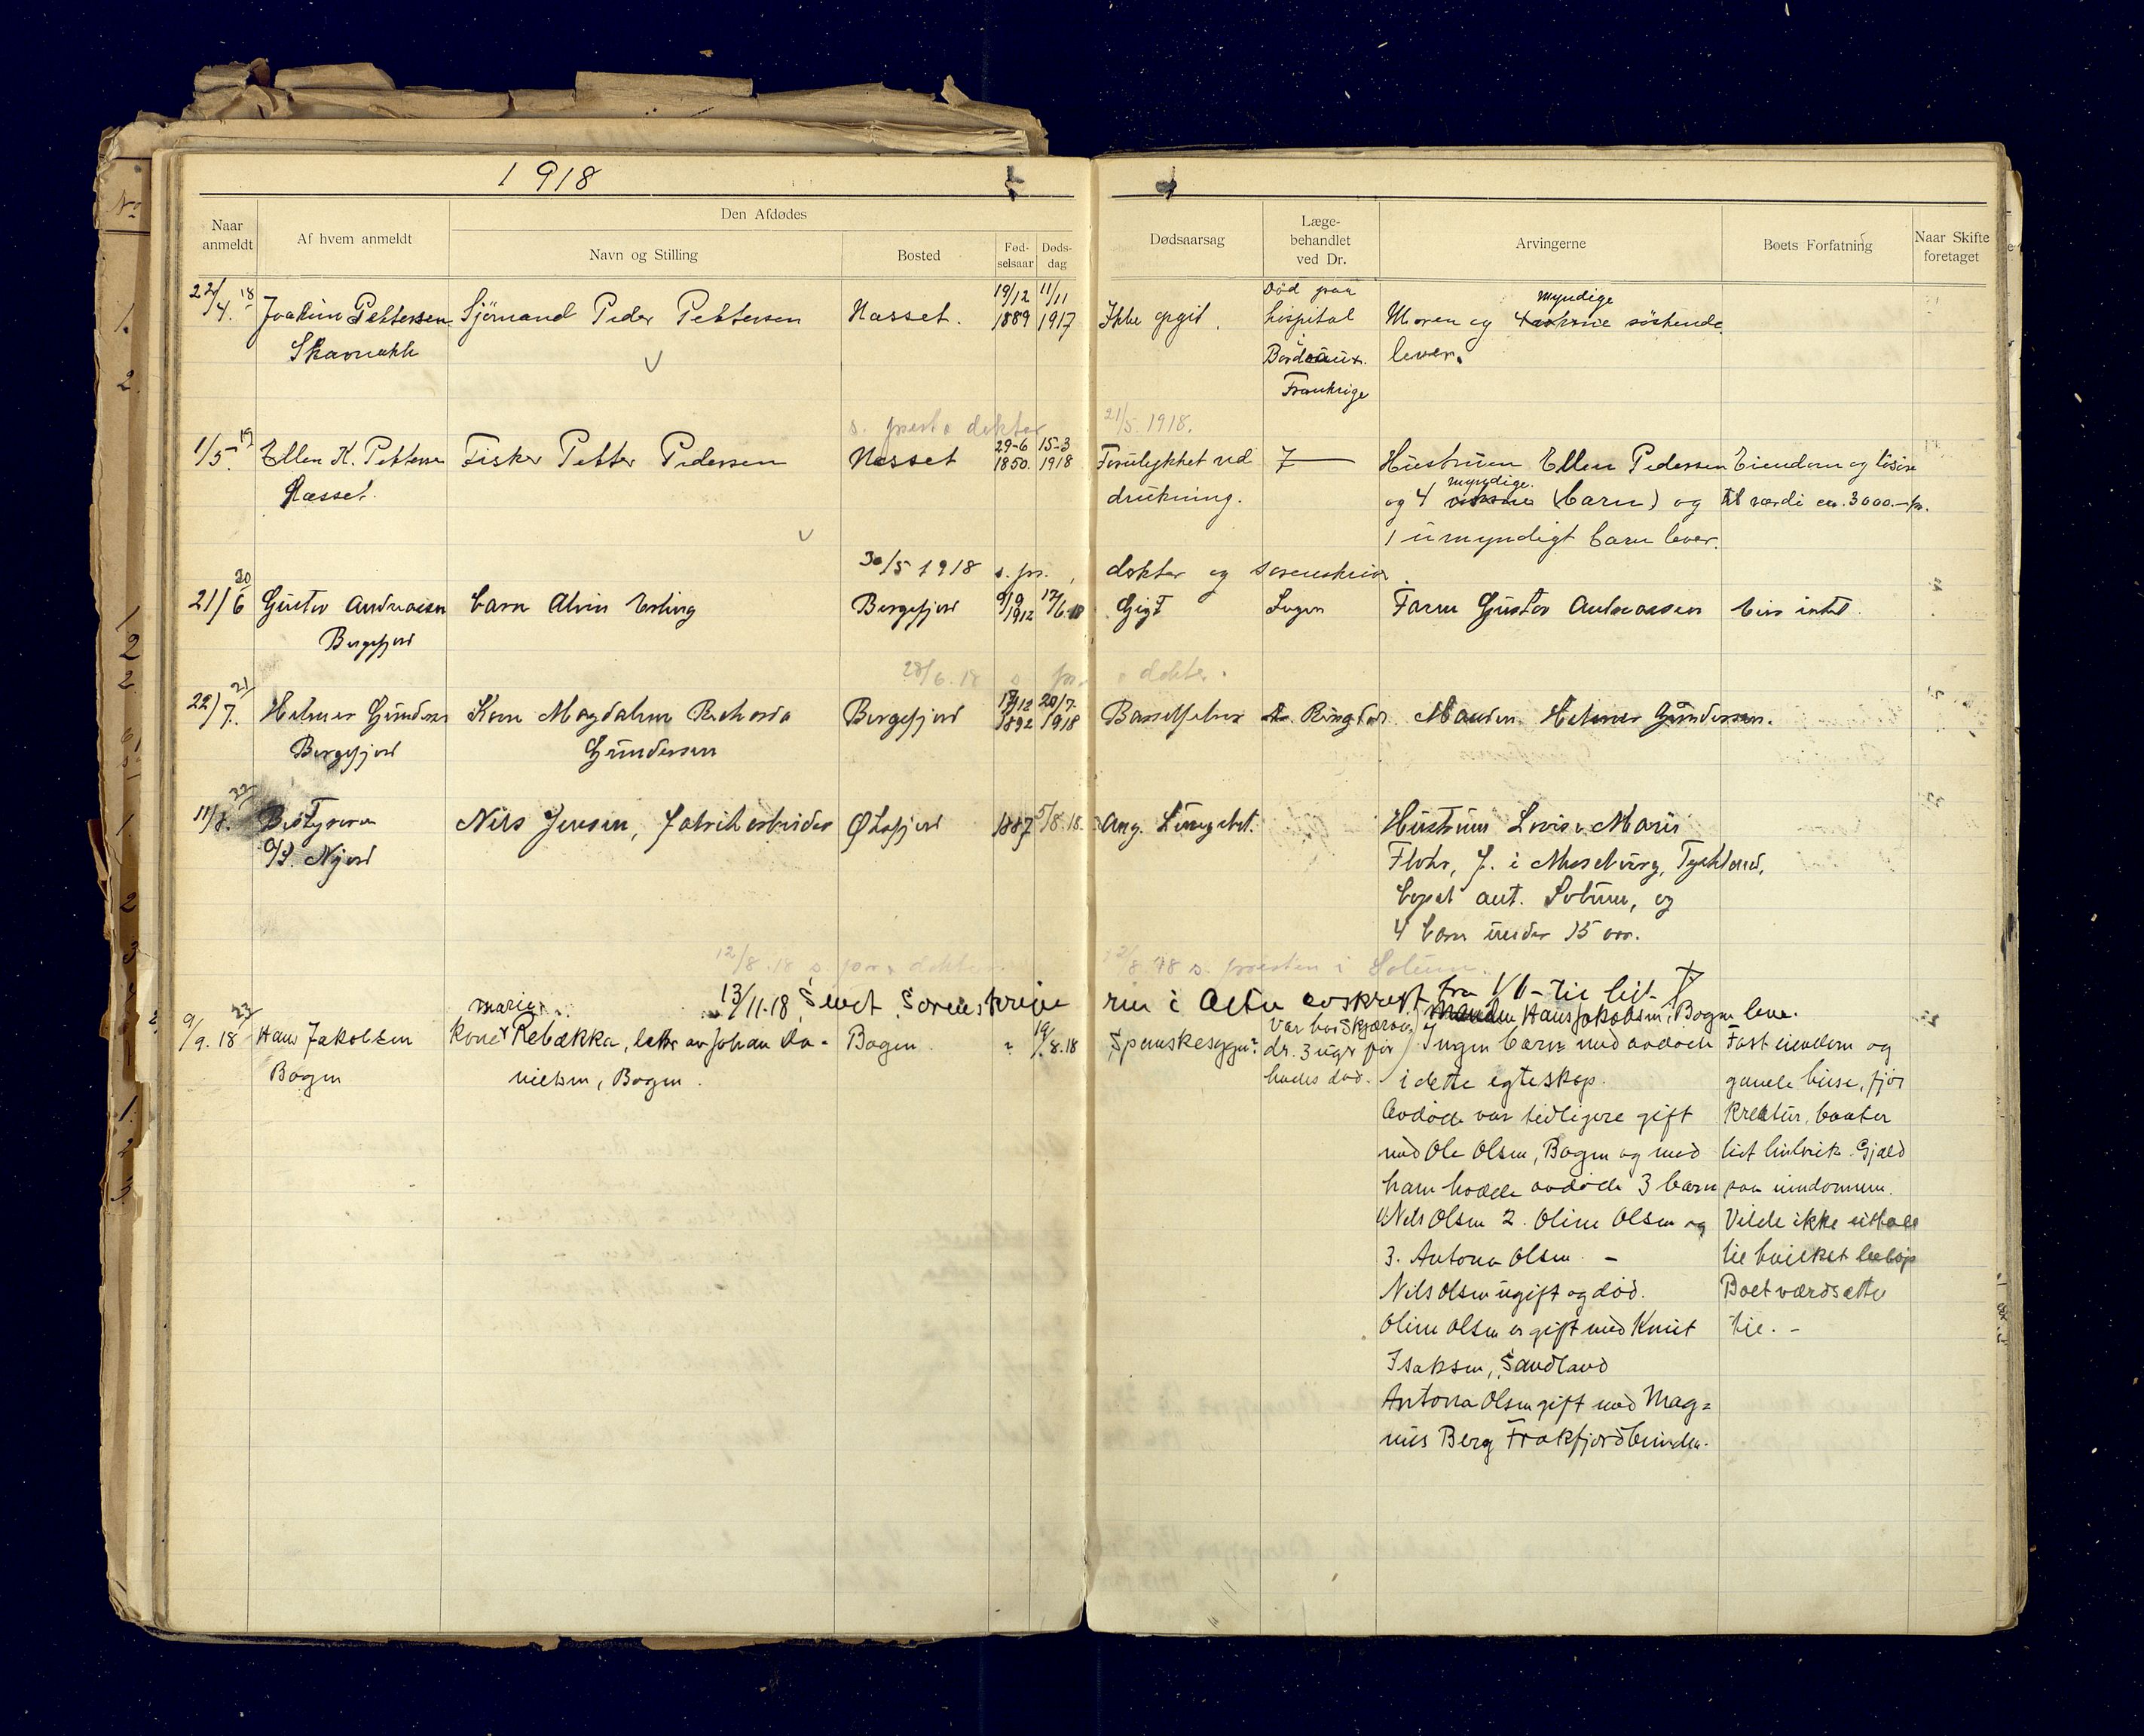 1918
Naar anmeldt
Af hvem anmeldt
Den Afdødes
Navn og Stilling
Bosted
Fød-selsaar
Døds-dag
Dødsaarsag
Læge-behandlet ved Dr.
Arvingerne
Boets Forfatning
Naar Skifte foretaget
22/4. 18 Joakim Pettersen Sjömand Peder Pettersen Nasset. 19/12 1889 11/11 1917 Ikke opgit. Död paa hospital Moren og 4 myndige söskende
Skavnakk i Bordeaux. lever.
Frankrige
s. prest o doktor 21/5 1918.
1/5. 19 Ellen K. Petterse Fisker Petter Pedersen Nasset 29-6 1850. 15-3 1918 Forulykket ved Hustruen Ellen Pedersen Eiendom og lösöre
Nasset. drukning. og 4 myndige (barn) og til værdi ca. 3000.-kr.
1 umyndigt barn lever.
30/5 1918 s. pr., doktor og sorenskriver.
21/6 20 Gustav Andreasen barn Alvin Erling Bergsfjord 9/9 1912 17/6.18 Gigt Ingen Faren Gustav Andreasen Eier intet.
Bergsfjord
28/6.18 s. pr. o doktor.
22/7. 21 Helmer Gundersen Kone Magdalene Rikarda Bergsfjord 17/12 1892 20/7. 1918 Barselfeber Dr. Ringdal Manden Helmer Gundersen.
Bergsfjord Gundersen
11/8. 22 Bestyreren Nils Jensen, fabrikarbeider Øksfjord 1887 5/8.18. Ang. Lungebet. Hustruen Lovise Marie
A/S. Njord Flohr, f. i Merseburg, Tyskland,
bopæl ant. Solum, og
4 barn under 15 aar.
12/8.18 s. pr. o doktor. 12/8.18 s. presten i Solum.
13/11.18 Sendt Sorenskriveren i Alta avskrift fra 1/1 - til hit -
9/9.18 23 Hans Jakobsen Kone Marie Rebækka, datter av Johan Da- Bogen ? 19/8.18 Spanskesygen? Var hos Skjærvøy Manden Hans Jakobsen, Bogen lever.
Bogen nielsen, Bogen. dr. 3 uger før Ingen barn med avdøde Fast eiendom og
hendes død. i dette egteskap. gamle huse, fjøs
Avdøde var tidligere gift kreatur, baater
med Ole Olsen, Bogen og med litet linbruk. Gjæld
ham hadde avdøde 3 barn paa eiendommen.
1. Nils Olsen 2. Oline Olsen og Vilde ikke uttale
3. Antona Olsen. - til hvilket beløp
Nils Olsen ugift og død. Boet værdsættes
Oline Olsen er gift med Knut til. -
Isaksen, Sandland
Antona Olsen gift med Mag=
nus Berg Frakfjordbunden.